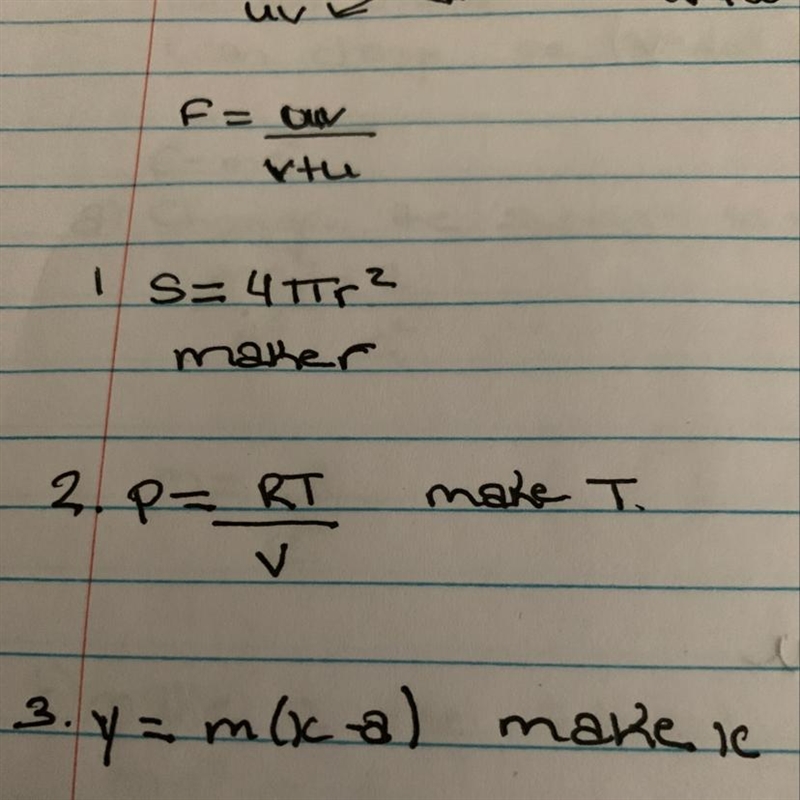 uv
F = uv
v+u
1 S = 4πr²
make r
2. P = RT make T.
V
3. y = m(x - a) make x